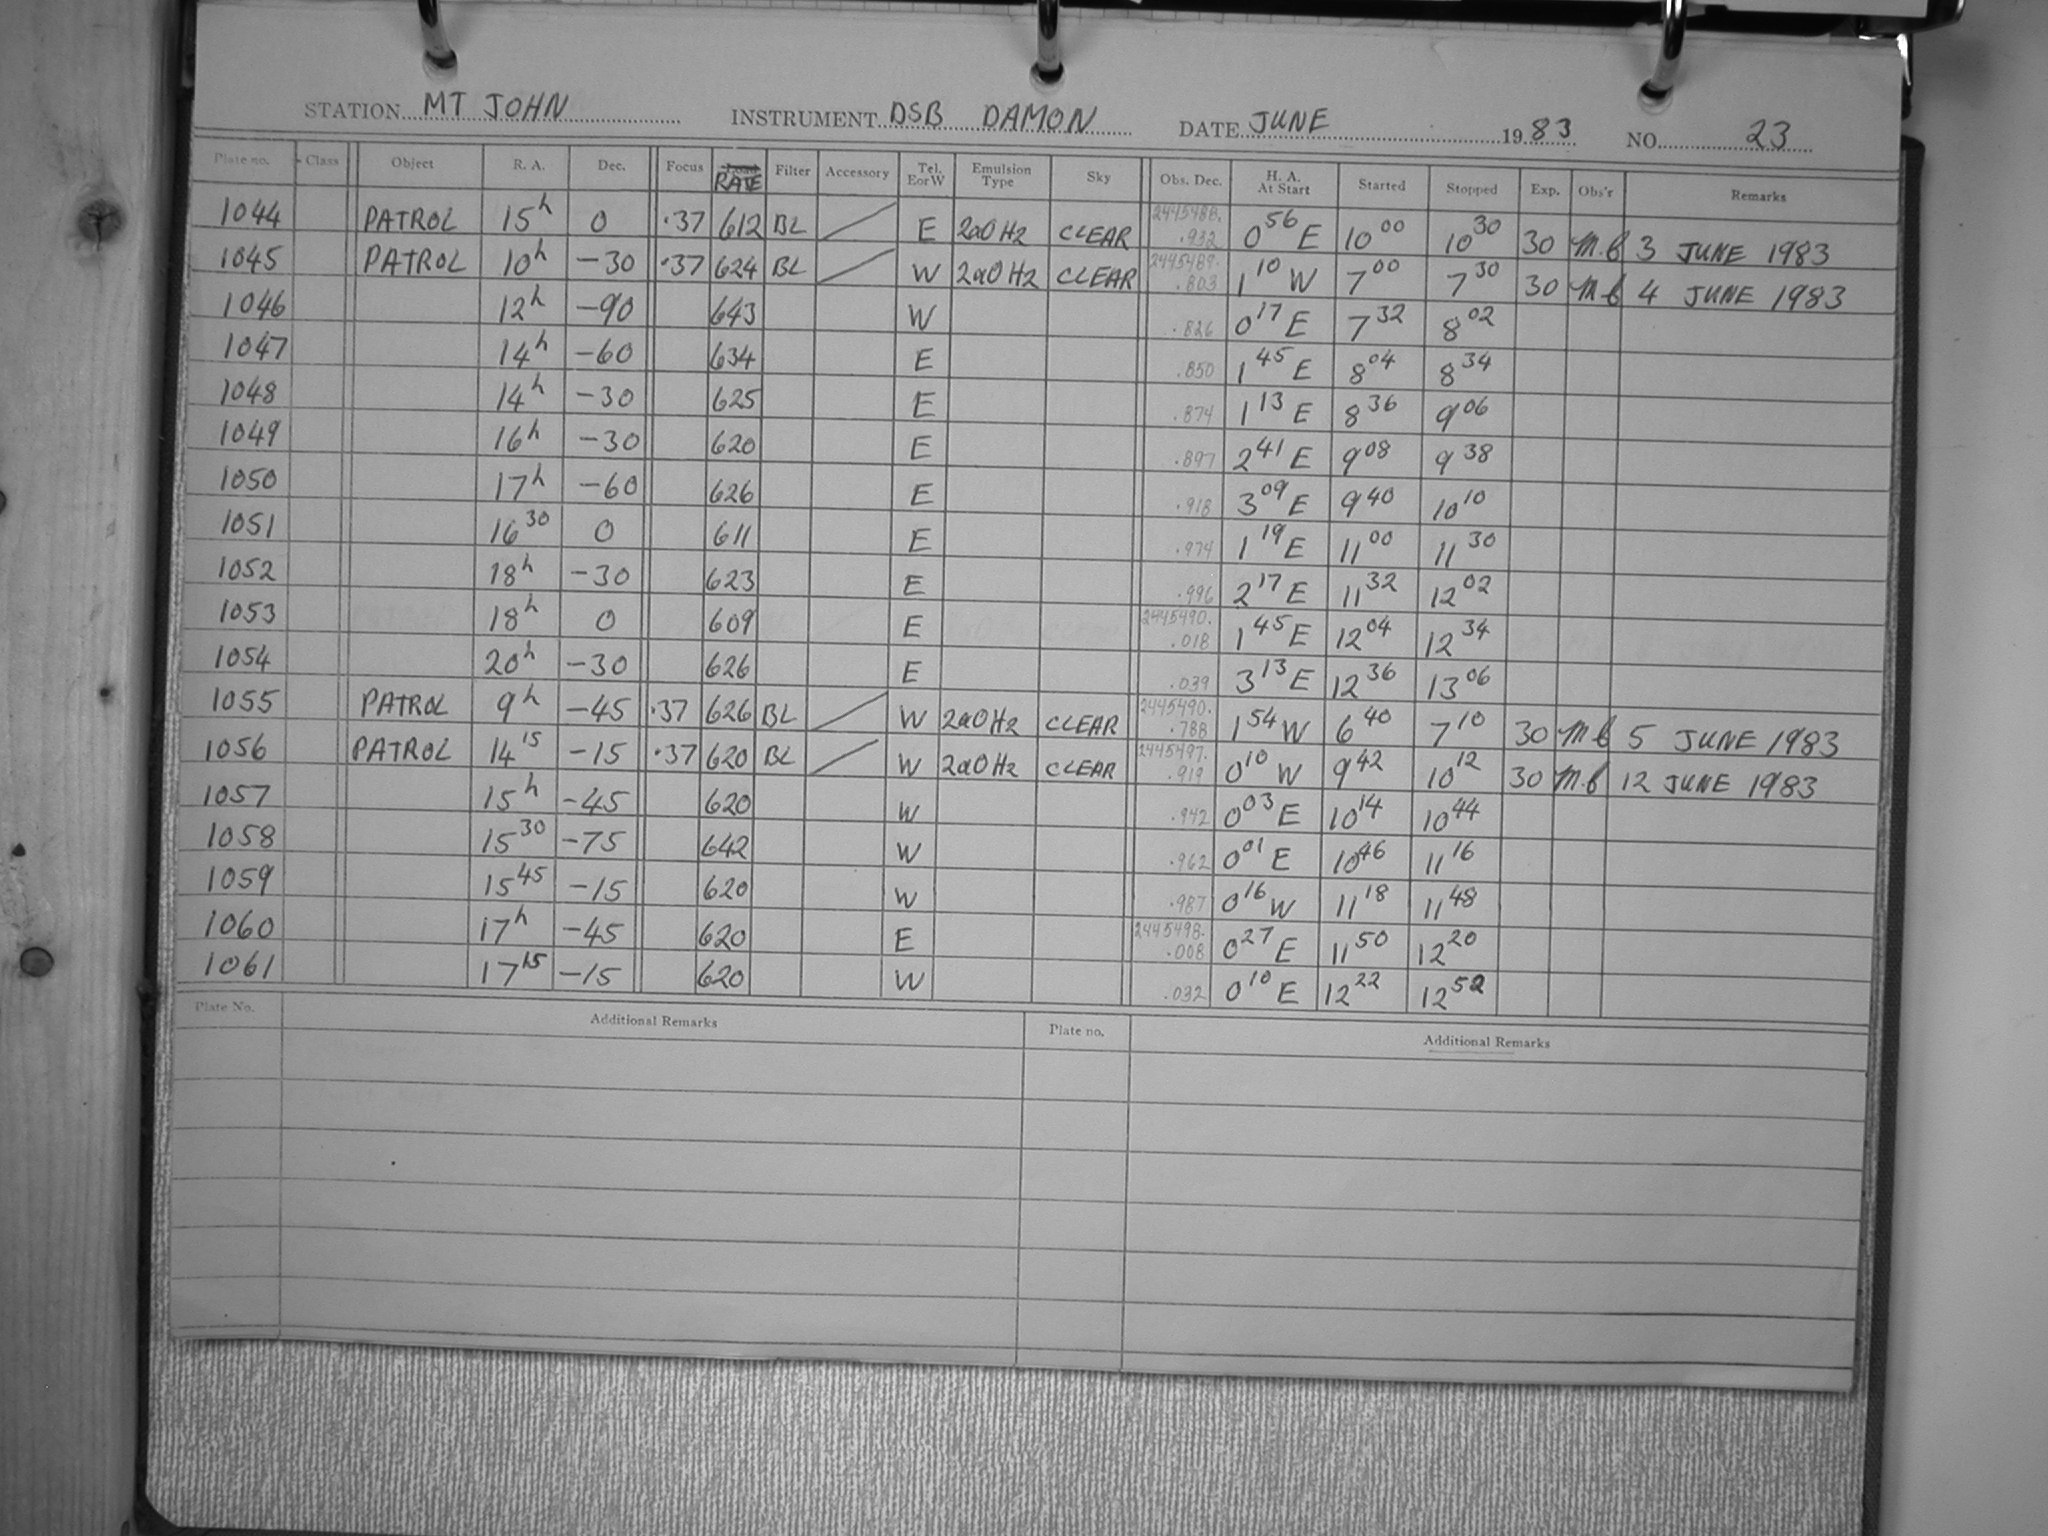 STATION MT JOHN INSTRUMENT DSB DAMON DATE JUNE 1983 NO. 23
Plate no. Class Object R. A. Dec. Focus RATE Filter Accessory Tel. E or W Emulsion Type Sky Obs. Dec. H. A. At Start Started Stopped Exp. Obs'r Remarks
1044 PATROL 15h 0 .37 612 BL E 2aOHz CLEAR 2445488.932 0 56 E 10 00 10 30 30 M.B 3 JUNE 1983
1045 PATROL 10h -30 .37 624 BL W 2aOHz CLEAR 2445489.803 1 10 W 7 00 7 30 30 M.B 4 JUNE 1983
1046 12h -90 643 W .826 0 17 E 7 32 8 02
1047 14h -60 634 E .850 1 45 E 8 04 8 34
1048 14h -30 625 E .874 1 13 E 8 36 9 06
1049 16h -30 620 E .897 2 41 E 9 08 9 38
1050 17h -60 626 E .918 3 09 E 9 40 10 10
1051 16 30 0 611 E .974 1 19 E 11 00 11 30
1052 18h -30 623 E .996 2 17 E 11 32 12 02
1053 18h 0 609 E 2445490.018 1 45 E 12 04 12 34
1054 20h -30 626 E .039 3 13 E 12 36 13 06
1055 PATROL 9h -45 .37 626 BL W 2aOHz CLEAR 2445490.788 1 54 W 6 40 7 10 30 M.B 5 JUNE 1983
1056 PATROL 14 15 -15 .37 620 BL W 2aOHz CLEAR 2445497.919 0 10 W 9 42 10 12 30 M.B 12 JUNE 1983
1057 15h -45 620 W .942 0 03 E 10 14 10 44
1058 15 30 -75 642 W .962 0 01 E 10 46 11 16
1059 15 45 -15 620 W .987 0 16 W 11 18 11 48
1060 17h -45 620 E 2445498.008 0 27 E 11 50 12 20
1061 17 15 -15 620 W .032 0 10 E 12 22 12 52
Plate No. Additional Remarks Plate no. Additional Remarks